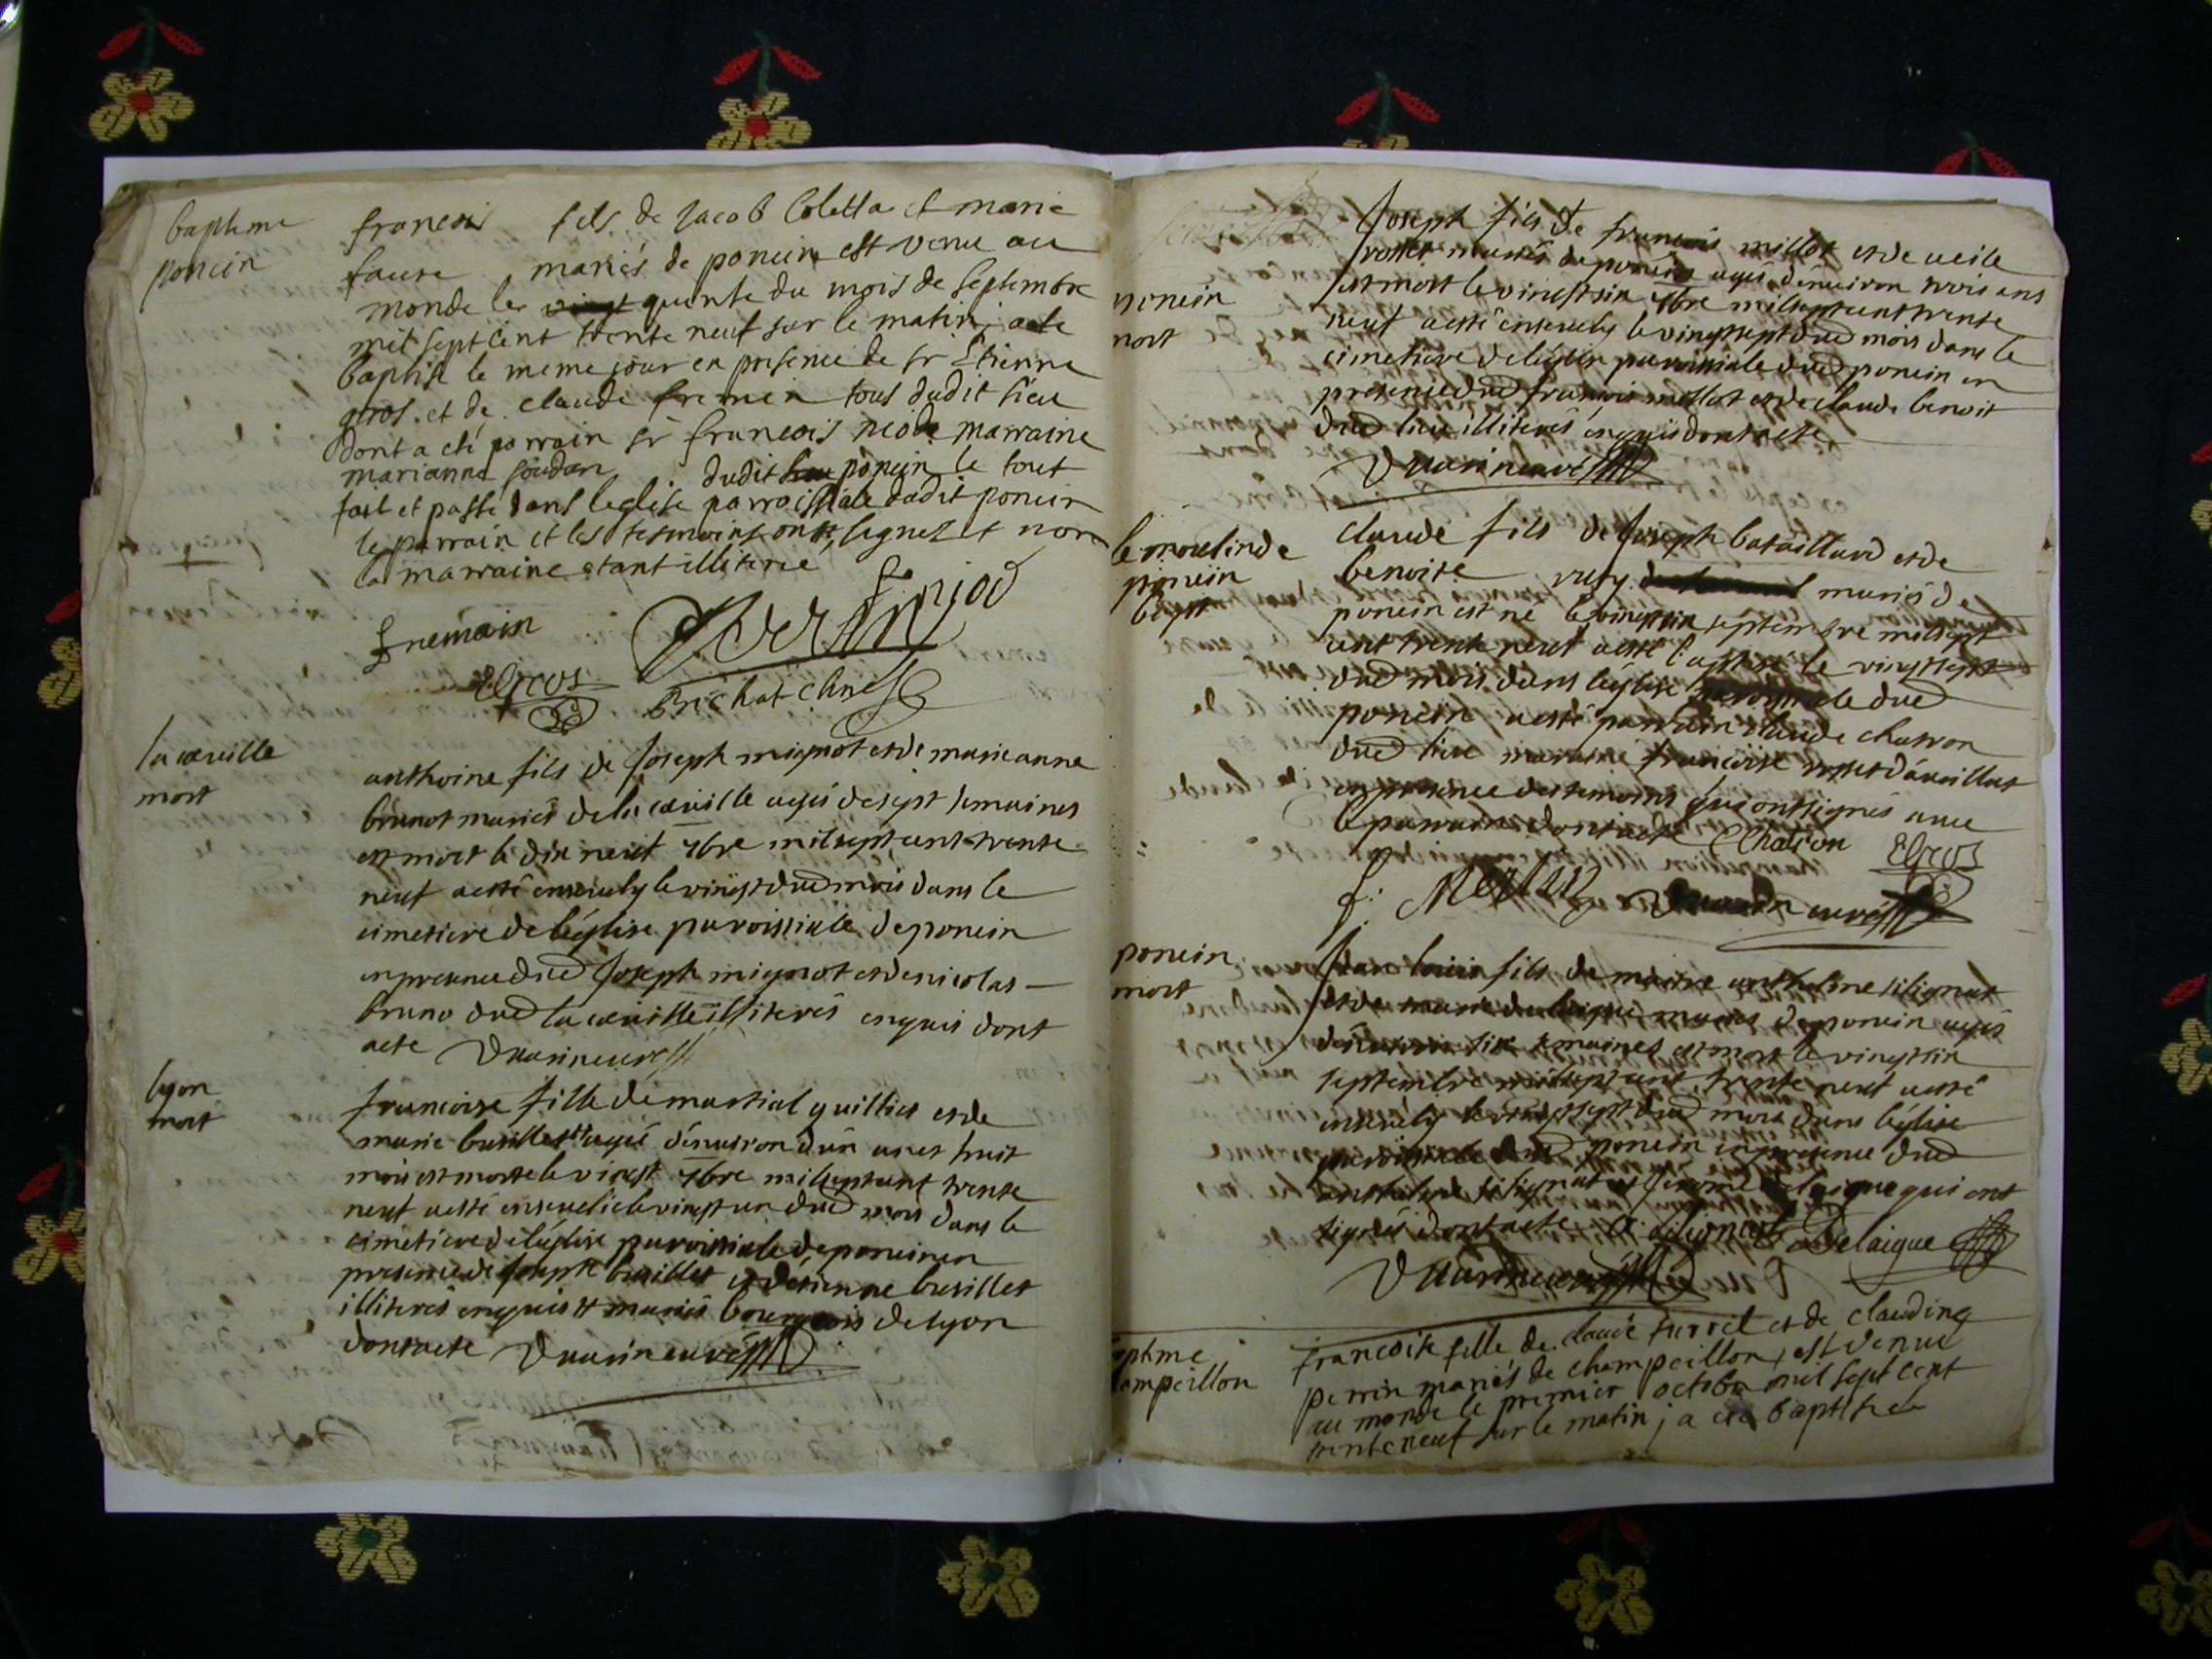 baptme
poncin
francois fils de Jacob Coletta et marie
faure mariés de poncin est venu au
monde le quinte du mois de septembre
mil sept cent trente neuf sur le matin, a ete
baptisé le meme jour en presence de sr Etienne
gros et de claude fremen tous dudit lieu
dont a eté parrain sr francois marraine
marianne soudan dudit poncin le tout
fait et passé dans leglise parroissiale dudit poncin
le parrain et les tesmoins ont signez et non
la marraine etant illiterée
fremain
EGros
Brichat
la cueille
mort
anthoine fils de Joseph mignot et de marieanne
brunot mariés de la cueille agé de sept semaines
est mort le dix neuf 7bre mil sept cent trente
neuf a esté ensevely le vingt dud mois dans le
cimetiere de léglise paroissiale de poncin
en presence dud Joseph mignot et de nicolas
bruno dud la cueille illiterés enquis dont
acte
lyon
mort
francoise fille de martial guillier et de
marie busillet agée dénviron dún an et huit
mois est morte le vingt 7bre mil sept cent trente
neuf a esté ensevelie le vingt un dud mois dans le
cimetiere de léglise paroissiale de poncin en
presence de Joseph busillet et détienne busillet
illiterés enquis # mariés bourgeois de lyon
dont acte
poncin
mort
Joseph fils de francois millot et de
mariés de poncin agé dénviron trois ans
est mort le vingt six 7bre mil sept cent trente
neuf a esté ensevely le vingt sept dud mois dans le
cimetiere de léglise paroissiale dud poncin en
presence dud francois millot et de claude benoit
dud lieu illiterés enquis dont acte
le moulin de
poncin
bapt
claude fils de Joseph bataillard et de
benoite mariés de
poncin est né le vingt six septembre mil sept
cent trente neuf a esté baptisé le vingt sept
dud mois dans léglise paroissiale dud
poncin a esté parrain claude chatron
dud lieu maraine francoise
en presence des temoins qui ont signés avec
le parrain dont acte C Chatron EGros
f.
poncin
mort
Jean fils de maitre anthelme silignat
et de marie delaigue mariés de poncin agé
dénviron six semaines est mort le vingt six
septembre mil sept cent trente neuf a esté
ensevely le vingt sept dud mois dans léglise
paroissiale dud poncin en presence dud
anthelme silignat et Jerome delaigue qui ont
signés dont acte Delaigue
francoise fille de claude et de claudine
perrin mariés de champeillon, est venue
au monde le premier octobre mil sept cent
trente neuf sur le matin, a ete baptisée